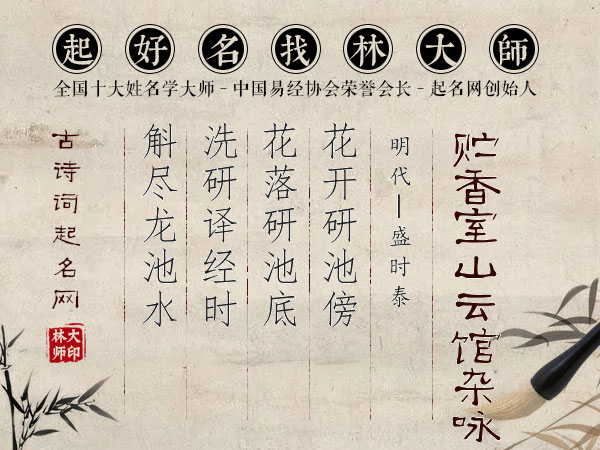 起好名找林大師
全国十大姓名学大师-中国易经协会荣誉会长-起名网创始人
贮香室山云馆杂咏
明代—盛时泰
花开研池傍
花落研池底
洗研译经时
斛尽龙池水
古诗词起名网
大印
林师